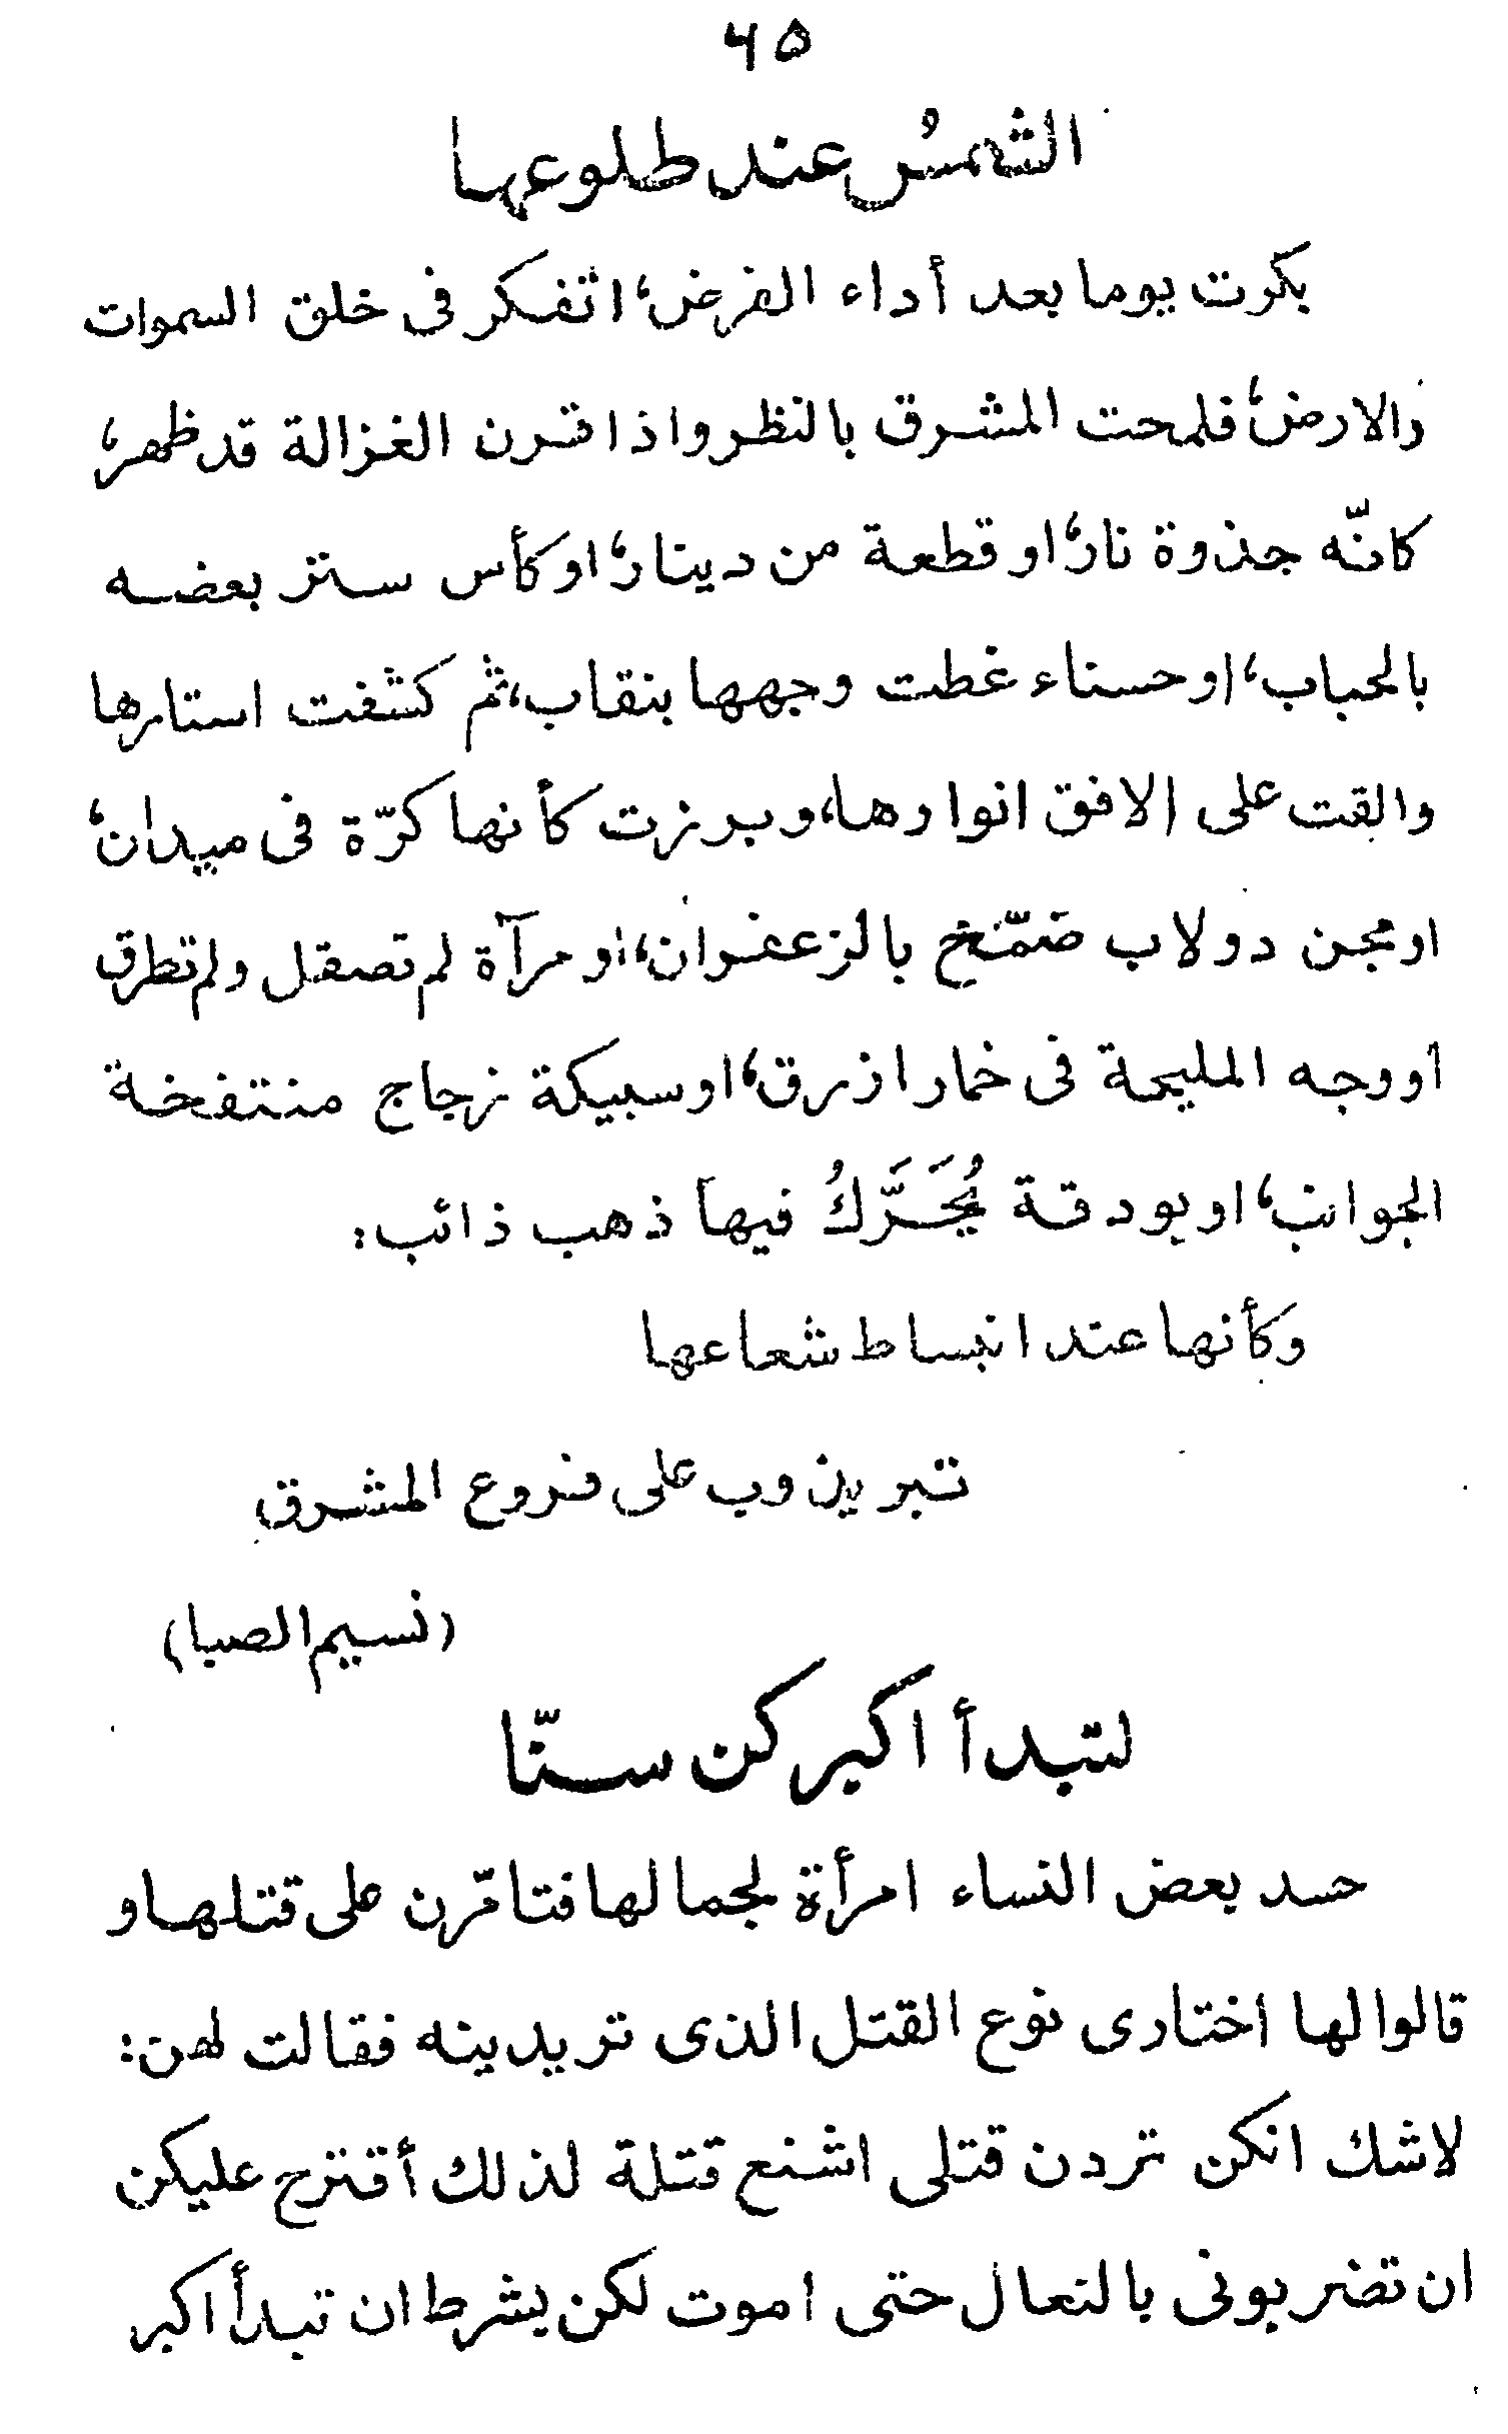 ۶۵
الشمسُ عند طلوعها
بكرت يوما بعد أداء الفرض، اتفكر فى خلق السموات
والارض، فلمحت المشرق بالنظر واذا قرن الغزالة قد ظهر،
كانّه جذوة نار، او قطعة من دينار، او كأس ستر بعضه
بالحباب، او حسناء غطت وجهها بنقاب، ثم كشفت استارها
والقت على الافق انوارها، وبرزت كأنها كرّة فى ميدان،
او مجن دولاب ضمّخ بالزعفران، او مرآة لم تصقل ولم تطرق
او وجه المليحة فى خمار ازرق، او سبيكة زجاج منتفخة
الجوانب، او بودقة يُحَرَّكُ فيها ذهب ذائب:
وكأنها عند انبساط شعاعها
تبر يذوب على فروع المشرق
(نسيم الصبا)
لتبدأ اكبركن سنّا
حسد بعض النساء امرأة لجمالها فتامّرن على قتلها و
قالوا لها اختارى نوع القتل الذى تريدينه فقالت لهن:
لاشك انكن تردن قتلى اشنع قتلة لذلك أقترح عليكن
ان تضربونى بالنعال حتى اموت لكن بشرط ان تبدأ اكبر